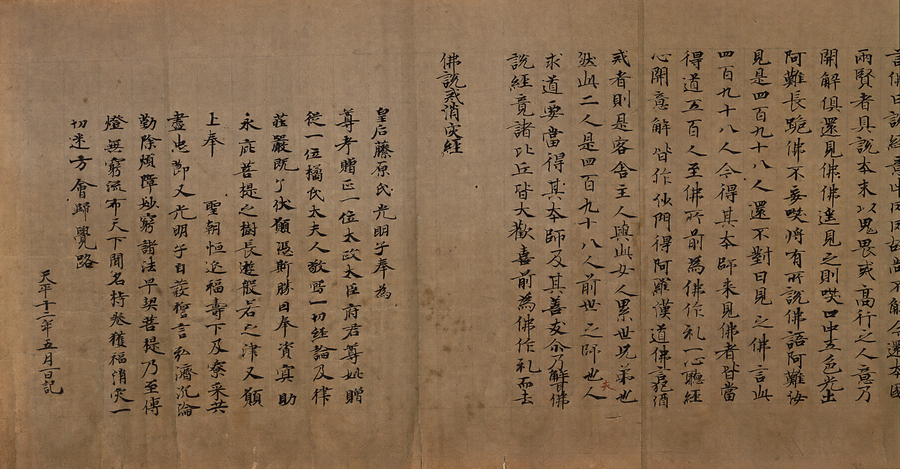 兩賢者具說本末以鬼畏戒高行之人意乃
開解俱還見佛佛逢見之則咲口中五色光出
阿難長跪佛不妄咲將有所說佛語阿難汝
見是四百九十八人還不對曰見之佛言此
四百九十八人今得其本師来見佛者皆當
得道五百人至佛所前為佛作礼一心聽經
心開意解皆作沙門得阿羅漢道佛言犯酒
戒者則是客舍主人與此女人累世兄弟也
然此二人是四百九十八人前世之師世人
求道要當得其本師及其善友尒乃解耳佛
說經竟諸比丘皆大歡喜前為佛作礼而去
佛說戒消灾經
皇后藤原氏光明子奉為
尊考贈正一位太政太臣府君尊妣贈
從一位橘氏太夫人敬寫一切經論及律
莊嚴既了伏願憑斯勝因奉資冥助
永庇菩提之樹長遊般若之津又願
上奉 聖朝恒延福壽下及寮采共
盡忠節又光明子自發誓言弘濟沉淪
勤除煩障妙窮諸法早契菩提乃至傳
燈無窮流布天下聞名持卷獲福消灾一
切迷方會歸覺路
天平十二年五月一日記